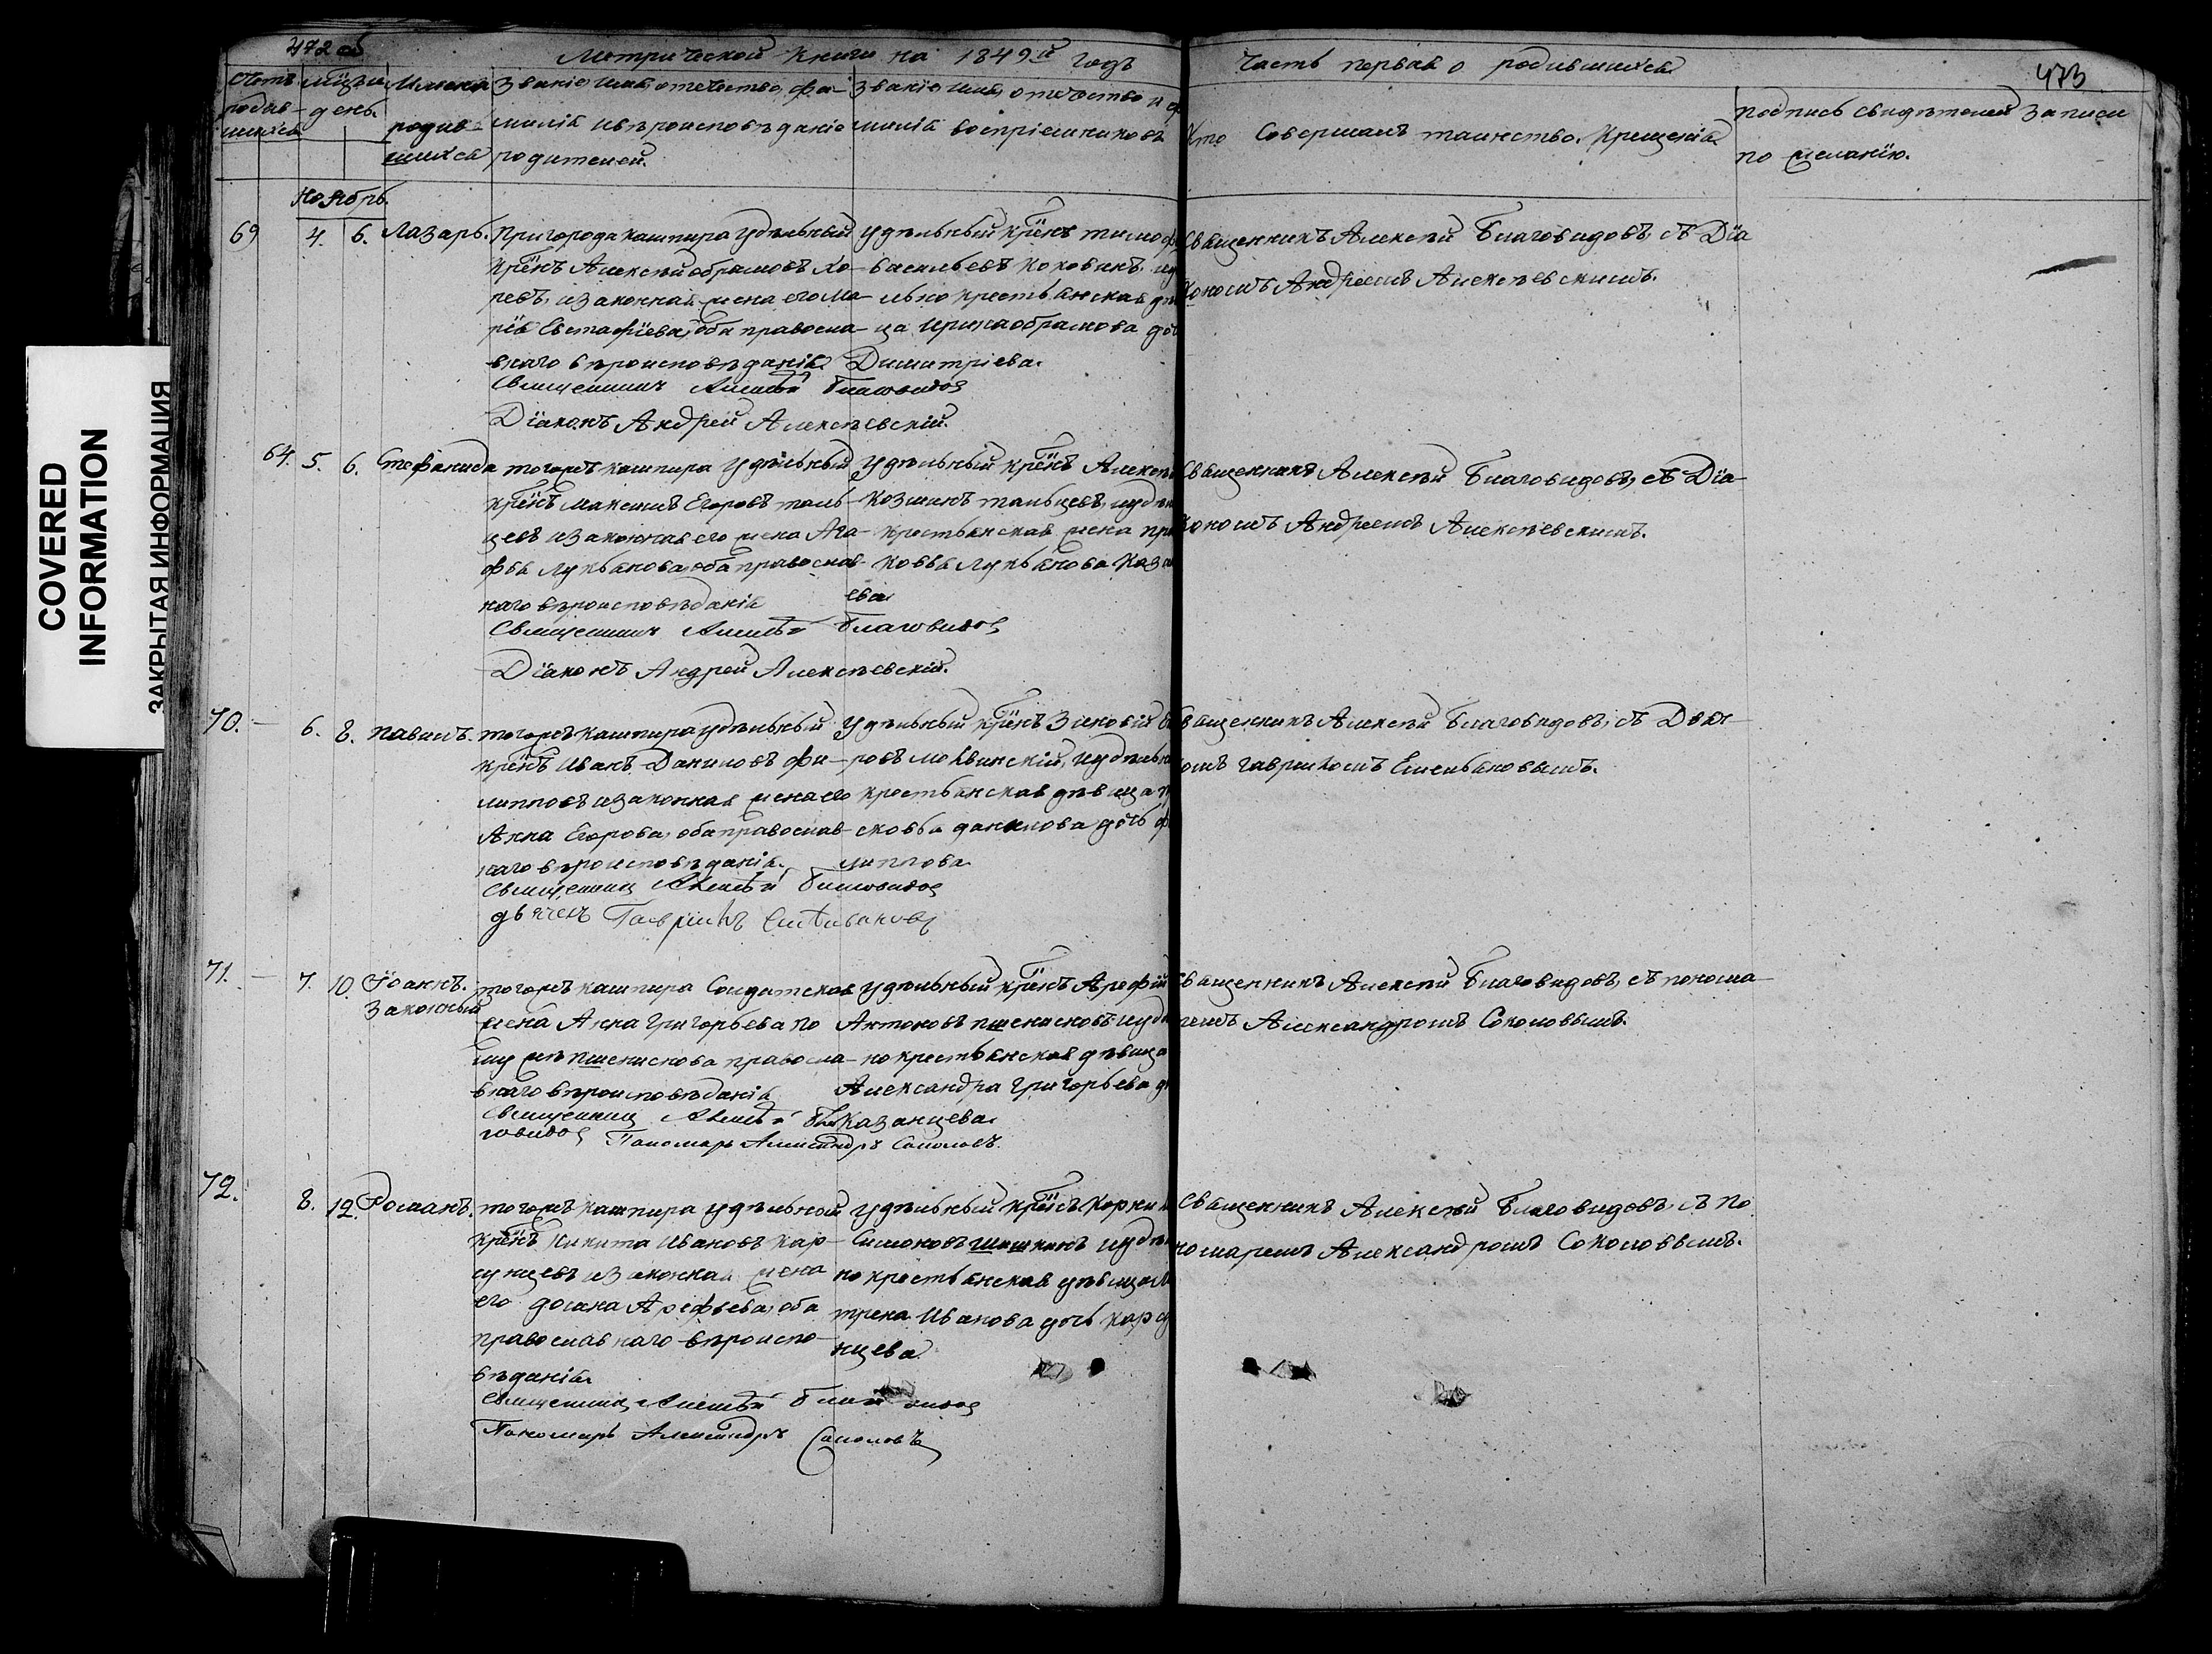 COVERED
INFORMATION
ЗАКРЫТАЯ ИНФОРМАЦИЯ
472 об
Метрической книги на 1849й годъ
Часть первая о родившихся
473
Счетъ родив-
шихся
Мѣсяцъ день.
Имена
родив-
шихся
Званіе имя, отечество, фа-
милія и вѣроисповѣданіе
родителей.
Званіе имя, отчество и ф
милія воспріемниковъ
Кто Совершалъ таинство. Крещенія.
подпись свидѣтелей записи
по желанію.
Ноябрь.
69
4.
6.
Лазарь.
Пригорода кашпира удѣльный
крѣнъ Алексѣй Абрамовъ Хо-
ревъ, и законная жена его Ма-
рія Евстафіева, оба правосла-
внаго вѣроисповѣданія
Священникъ Алексѣй Благовидов
Діаконъ Андрей Алексѣевскій.
удѣльный крѣнъ тимоф
васильевъ Коковинъ, и уд
льно крестьянская дѣ
ца Ирина Абрамова доч
Димитріева.
Священникъ Алексѣй Благовидовъ, съ Діа
кономъ Андреемъ Алексѣевскимъ.
64.
5.
6.
Стефанида
тогожъ кашпира удѣльный
крѣнъ Максимъ Егоровъ таль-
цевъ и законная его жена Ага-
фья Лукьянова, оба православ-
наго вѣроисповѣданія
Священникъ Алексѣй Благовидов
Діаконъ Андрей Алексѣевскій.
удѣльный крѣнъ Алексѣ
Козминъ тальцевъ, и удѣл
крестьянская жена пра
ковья Лукьянова Каза
ева
Священникъ Алексѣй Благовидовъ, съ Діа-
кономъ Андреемъ Алексѣевскимъ.
70.
6.
8.
павилъ.
тогожъ кашпира удѣльный
крѣнъ Иванъ Даниловъ фи-
липповъ и законная жена его
Анна Егорова, оба православ-
наго вѣроисповѣданія.
Священникъ Алексѣй Благовидов
дьячекъ Гаврилъ Емельяновъ
удѣльный крѣнъ Зиновій
ровъ Моквинскій, и удѣльн
крестьянская дѣвица п
сковья данилова дочь ф
липпова.
Священникъ Алексѣй Благовидовъ, съ Дьяч-
омъ гавриломъ Емельяновымъ.
71.
7.
10.
Іоаннъ.
Законный
тогожъ кашпира Солдатская
жена Анна Григорьева по
мужѣ пшениснова правосла-
внаго вѣроисповѣданія
Священникъ Алексѣй Бла
говидов Пономарь Александръ Соколовъ.
удѣльный крѣнъ Арефій
Антоновъ пшенисновъ и удѣ
но крестьянская дѣвица
Александра Григорьева д
Казанцева.
Священникъ Алексѣй Благовидовъ, съ понома-
ремъ Александромъ Соколовымъ.
72.
8.
12.
Романъ.
тогожъ кашпира удѣльной
крѣнъ Никита Ивановъ кар-
сунцевъ и законная жена
его домна Арефьева, оба
православнаго вѣроиспо-
вѣданія.
Священникъ Алексѣй Благовидов
Пономарь Александръ Соколовъ
удѣльный крѣнъ Корни
Симоновъ Шишкинъ и удѣл
но крестьянская дѣвица М
трена Иванова дочь карсу
нцева
Священникъ Алексѣй Благовидовъ, съ По
номаремъ Александромъ Соколовымъ.